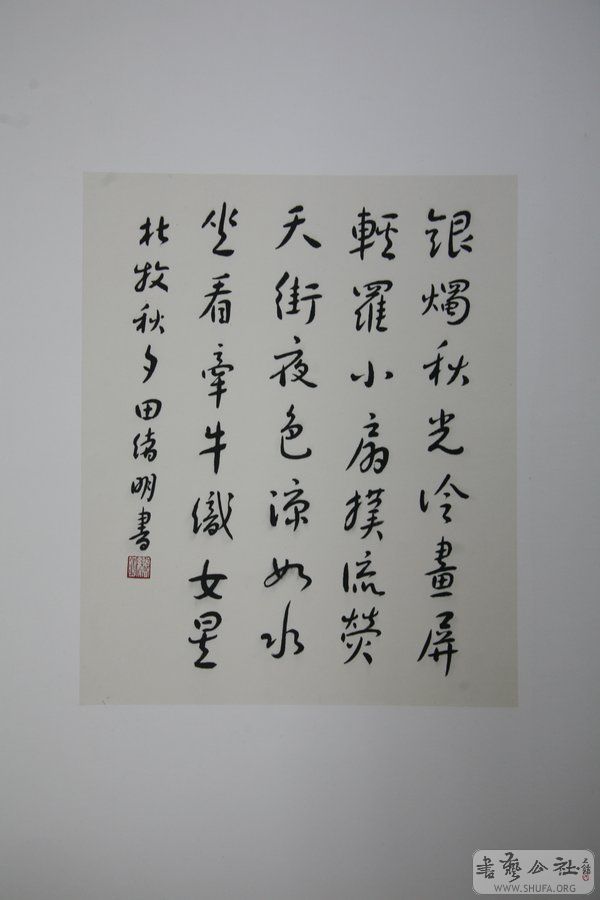 銀燭秋光冷畫屏
輕羅小扇撲流螢
天街夜色涼如水
坐看牽牛織女星
杜牧秋夕田绪明書
書藝公社
WWW.SHUFA.ORG